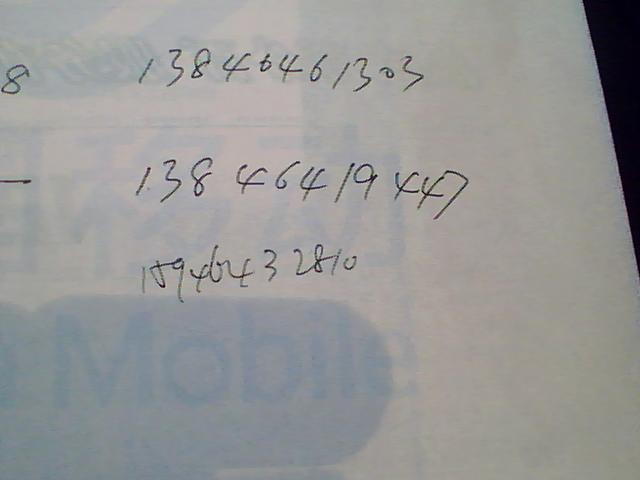 8 13846461303
— 13846419447
15946432810
Mobile